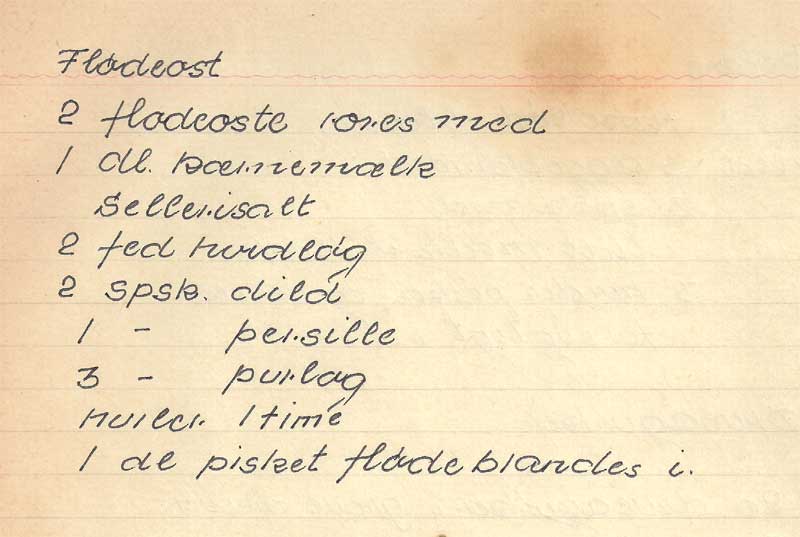 Flødeost
2 flødeoste røres med
1 dl. kærnemælk
Sellerisalt
2 fed hvidløg
2 spsk. dild
1 - persille
3 - purløg
hviler 1 time
1 dl pisket fløde blandes i.